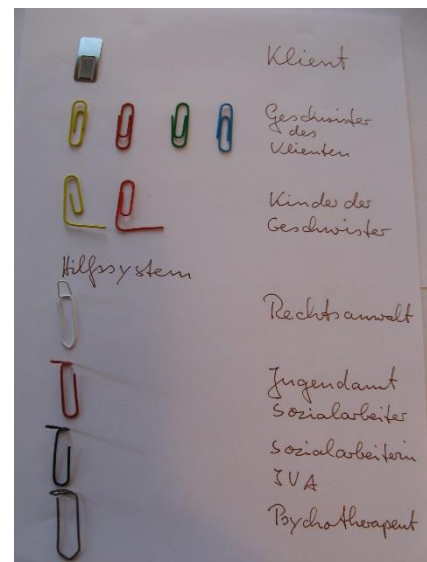 Klient
Geschwister
des
Klienten
Kinder der
Geschwister
Hilfssystem
Rechtsanwalt
Jugendamt
Sozialarbeiter
Sozialarbeiterin
JVA
Psychotherapeut